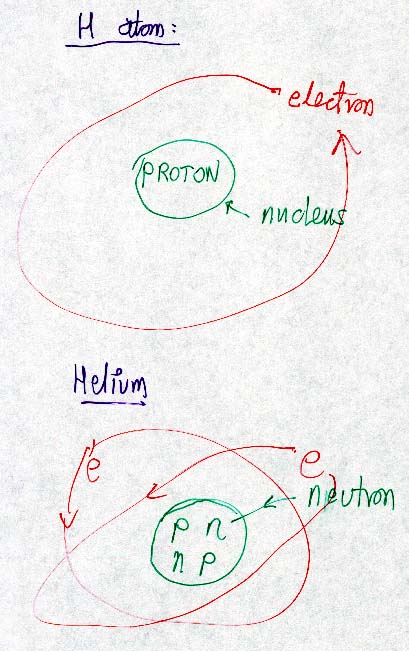 H atom:
electron
PROTON
nucleus
Helium
e
e
neutron
p n
n p